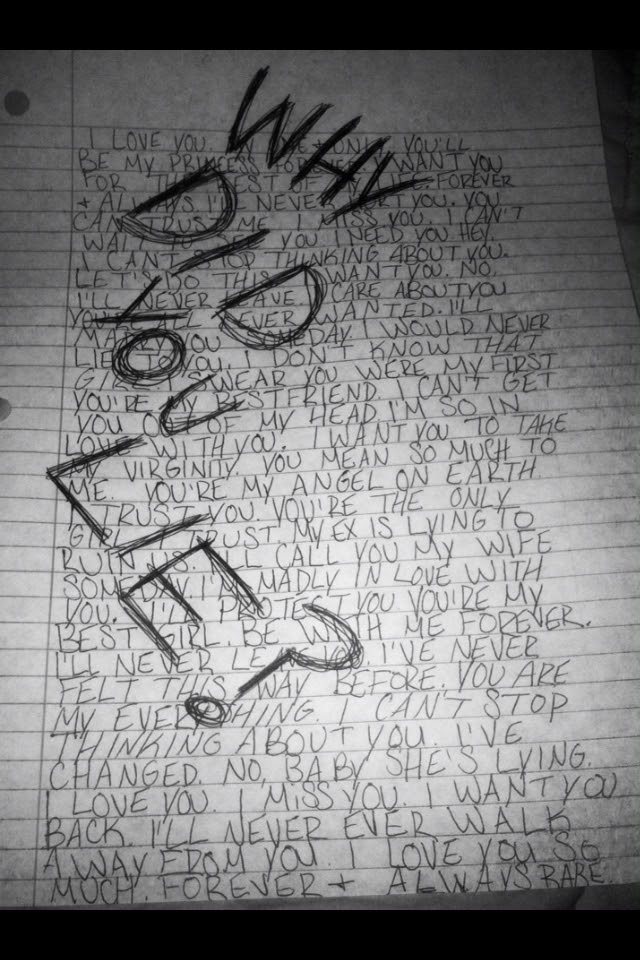 WHY
DID
YOU
LIE?
I LOVE YOU. ONLY. YOU'LL
BE MY PRINCESS I WANT YOU
FOR THE REST OF LIFE. FOREVER
+ ALWAYS I'LL NEVER YOU. YOU
CAN TRUST ME. I MISS YOU. I CAN'T
WAIT TO YOU I NEED YOU. HEY,
I CAN'T STOP THINKING ABOUT YOU.
LET'S DO THIS. I WANT YOU. NO.
I'LL NEVER CARE ABOUT YOU
EVER WANTED. I'LL
YOU I WOULD NEVER
LIE TO YOU. I DON'T KNOW THAT
GIRL. I SWEAR YOU WERE MY FIRST
YOU'RE MY BESTFRIEND. I CAN'T GET
YOU OUT OF MY HEAD. I'M SO IN
LOVE WITH YOU. I WANT YOU TO TAKE
MY VIRGINITY. YOU MEAN SO MUCH TO
ME. YOU'RE MY ANGEL ON EARTH
I TRUST YOU. YOU'RE THE ONLY
GIRL I TRUST. MY EX IS LYING TO
RUIN US. I'LL CALL YOU MY WIFE
SOMEDAY. I'M MADLY IN LOVE WITH
YOU. I'LL PROTECT YOU YOU'RE MY
BEST GIRL BE WITH ME FOREVER.
I'LL NEVER YOU. I'VE NEVER
FELT THIS WAY BEFORE. YOU ARE
MY EVERYTHING. I CAN'T STOP
THINKING ABOUT YOU. I'VE
CHANGED. NO, BABY SHE'S LYING.
I LOVE YOU. I MISS YOU. I WANT YOU
BACK. I'LL NEVER EVER WALK
AWAY FROM YOU. I LOVE YOU SO
MUCH. FOREVER + ALWAYS BABE.